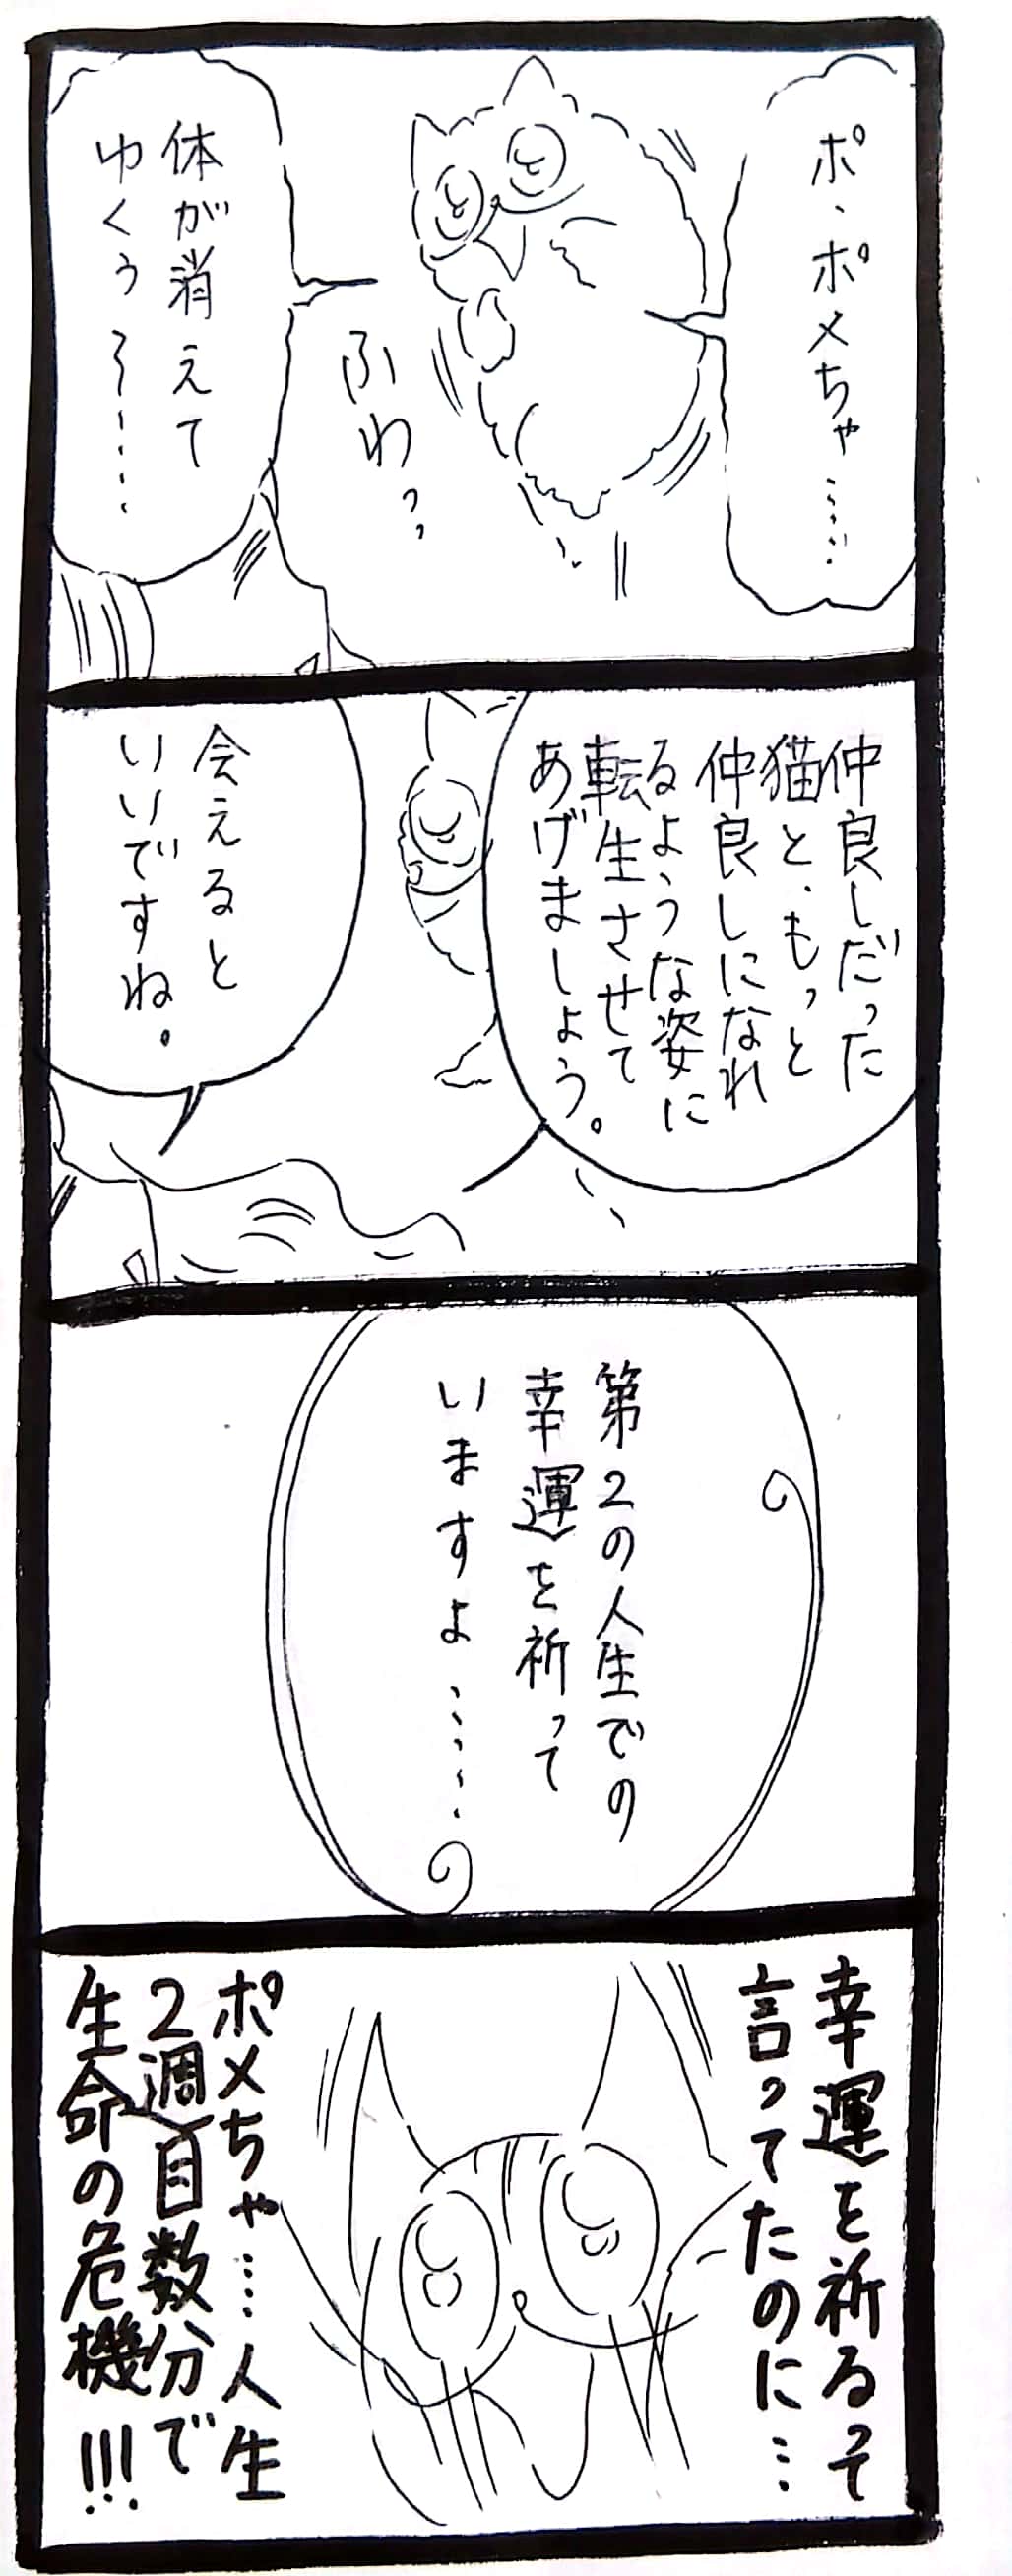 ポ、ポメちゃ……
体が消えて
ゆくぅ〜……
ふわっ
仲良しだった
猫と、もっと
仲良しになれ
るような姿に
転生させて
あげましょう。
会えると
いいですね。
第2の人生での
幸運を祈って
いますよ……
幸運を祈るって
言ってたのに…
ポメちゃ……人生
2週目数分で
生命の危機!!!